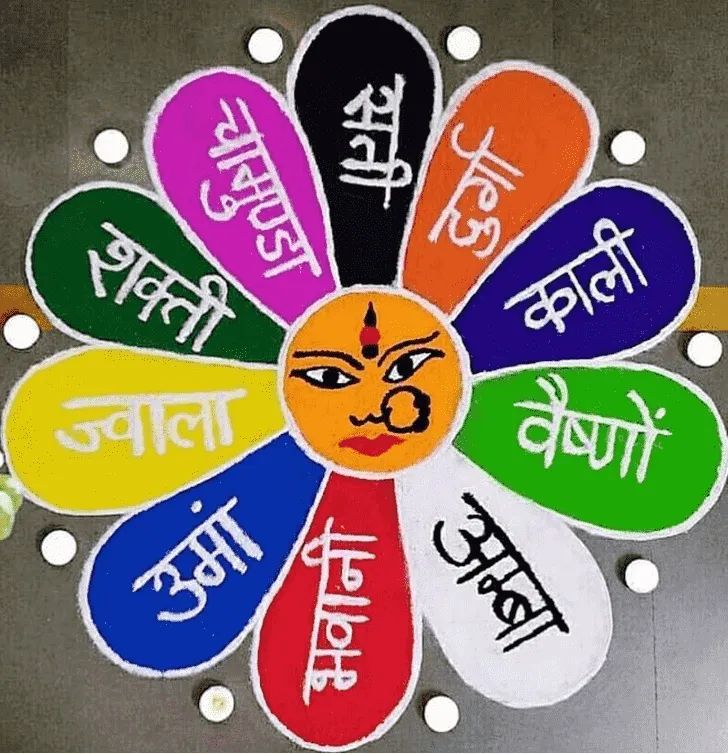 सती
दुर्गा
काली
वैष्णों
अम्बा
भवानी
उमां
ज्वाला
शक्ती
चामुण्डा